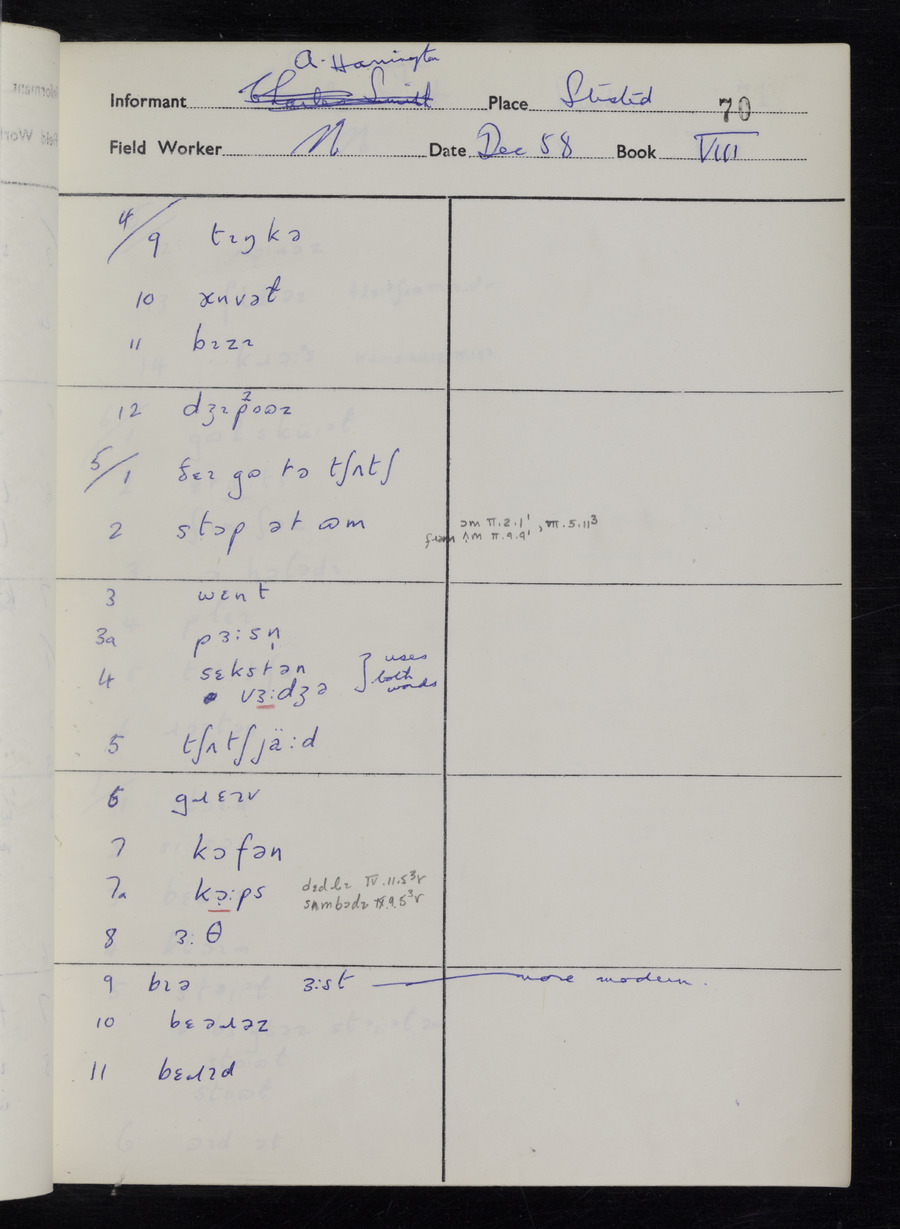 A. Harrington
Informant Charles Smith Place Stisted 70
Field Worker N Date Dec 58 Book VIII
4/9 tɪŋkə
10 ɒnvət
11 bɪzɪ
12 dʒɪpʔoʊz
5/1 ðɛɪ gʊ tə tʃʌtʃ
2 stɔp ət ʊm
əm II.2.1¹, VII.5.11³
from ʌm II.9.9¹
3 wɛnt
3a pɜ:sn̩
4 sɛkstən } uses
vɜ:dʒə both
words
5 tʃʌtʃjä:d
6 gɹɛɪv
7 kɔfən
7a kə:ps
dɛdlɪ IV.11.5³r
sʌmbɔdɪ IX.9.5³r
8 ɜ:θ
9 bɪə ɜ:st — more modern.
10 bɛəɹəz
11 bɛɹɪd